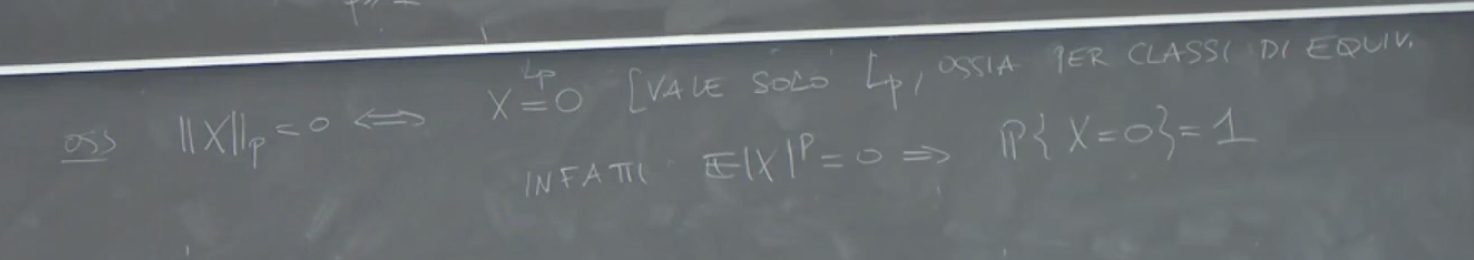 oss ||X||_p = 0 ⟺ X =^{L_p} 0 [VALE SOLO L_p, OSSIA PER CLASSI DI EQUIV.
INFATTI E|X|^p = 0 ⟹ ℙ{X=0}=1